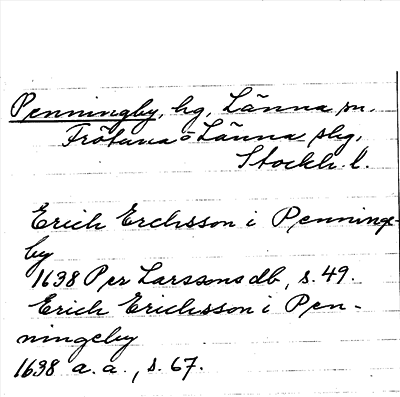 Penningby, hg, Länna sn.
Frötuna o Länna slg,
Stockh. l.
Erich Erchsson i Penninge-
by
1638 Per Larssons db, s. 49.
Erich Erichsson i Pen-
ningeby
1638 a. a., s. 67.